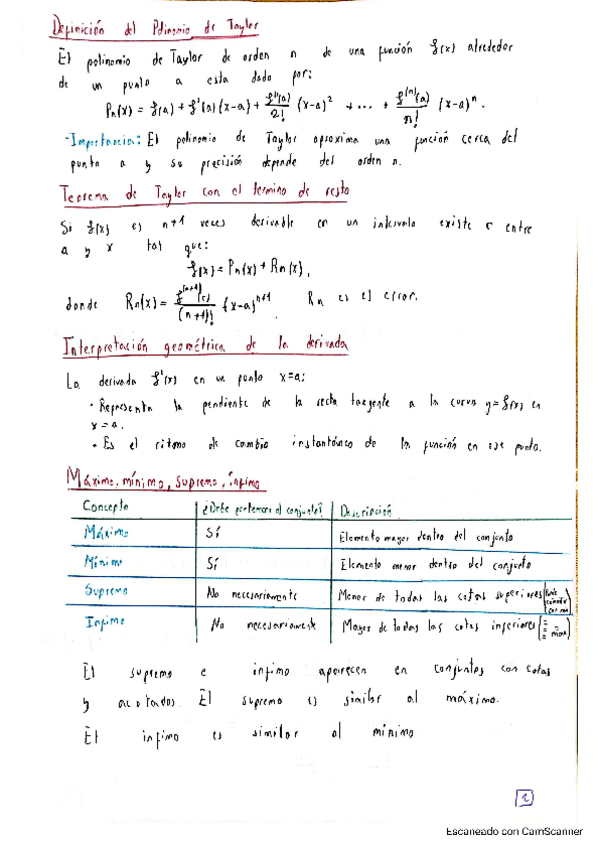 Definición del Polinomio de Taylor
El polinomio de Taylor de orden n de una función f(x) alrededor
de un punto a esta dado por:
Pn(x) = f(a) + f'(a)(x-a) + f''(a)/2! (x-a)² + ... + f⁽ⁿ⁾(a)/n! (x-a)ⁿ.
-Importancia: El polinomio de Taylor aproxima una función cerca del
punto a y su precisión depende del orden n.
Teorema de Taylor con el termino de resto
Si f(x) es n+1 veces derivable en un intervalo existe c entre
a y x tal que:
f(x) = Pn(x) + Rn(x),
donde Rn(x) = f⁽ⁿ⁺¹⁾(c)/(n+1)! (x-a)ⁿ⁺¹. Rn es el error.
Interpretación geométrica de la derivada
La derivada f'(x) en un punto x=a:
• Representa la pendiente de la recta tangente a la curva y=f(x) en
x=a.
• Es el ritmo de cambio instantáneo de la función en ese punto.
Máximo, mínimo, supremo, ínfimo
Concepto ¿Debe pertenecer al conjunto? Descripción
Máximo Sí Elemento mayor dentro del conjunto
Mínimo Sí Elemento menor dentro del conjunto
Supremo No necesariamente Menor de todas las cotas superiores
Infimo No necesariamente Mayor de todas las cotas inferiores
El supremo e infimo aparecen en conjuntos con cotas
y acotados. El supremo es similar al máximo.
El infimo es similar al mínimo
2
Escaneado con CamScanner